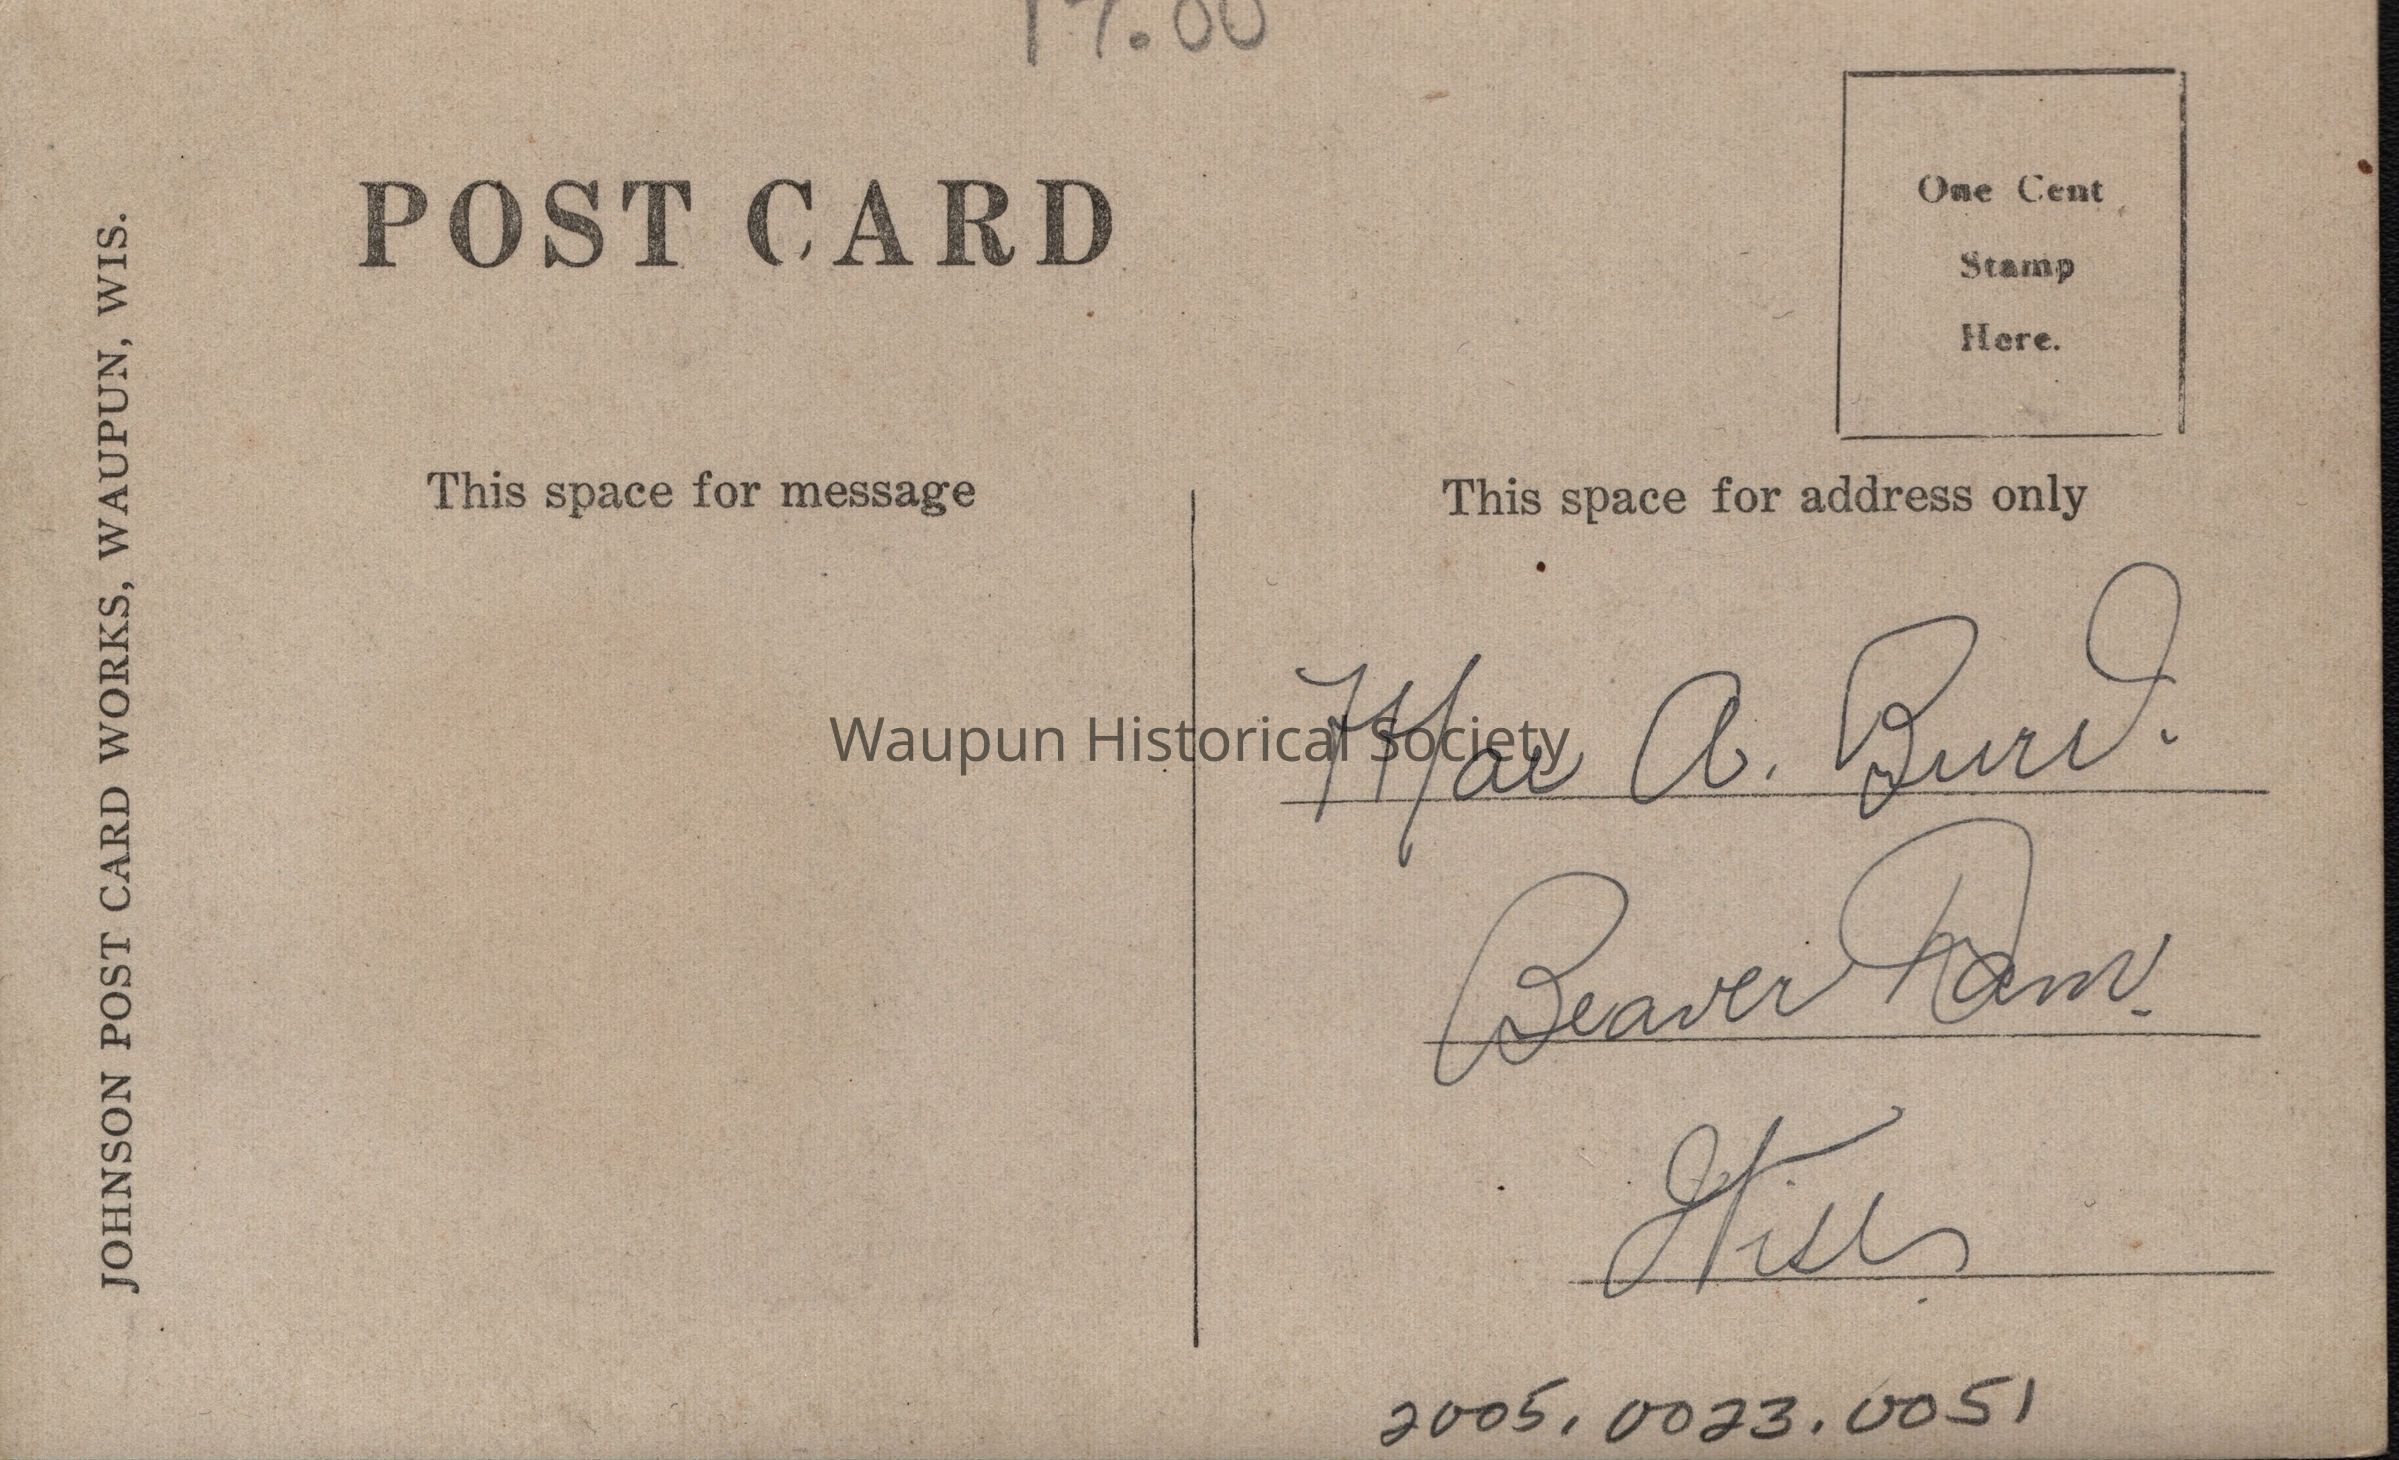 POST CARD
One Cent
Stamp
Here.
JOHNSON POST CARD WORKS, WAUPUN, WIS.
This space for message
This space for address only
Mae A. Burd.
Waupun Historical Society
Beaver Dam.
Wis.
2005.0023.0051